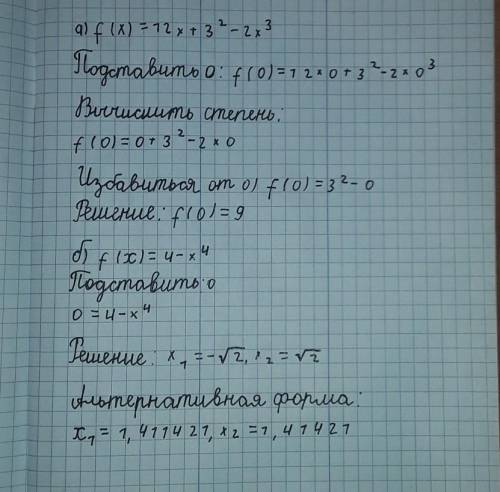 а) f(x)=12x+3²-2x³
Подставить 0: f(0)=12×0+3²-2×0³
Вычислить степень:
f(0)=0+3²-2×0
Избавиться от 0) f(0)=3²-0
Решение: f(0)=9
б) f(x)=4-x⁴
Подставить 0
0=4-x⁴
Решение: x₁=-√2, x₂=√2
Альтернативная форма:
x₁=1,411421, x₂=1,41421